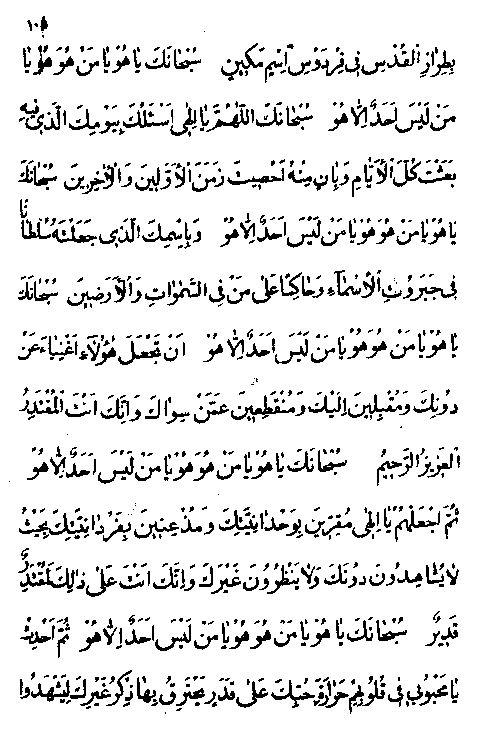 ١٠٥
بِطِرازِ القُدْسِ فِى فِرْدَوْسِ اسْمٍ مَكينٍ سُبْحانَكَ يا هُوَ يا مَنْ هُوَ هُوَ يا
مَنْ لَيْسَ اَحَدٌ اِلّا هُوَ سُبْحانَكَ اللّهُمَّ يا اِلهى اَسْئَلُكَ بِيَوْمِكَ الَّذى فيهِ
بَعَثْتَ كُلَّ الْاَيّامِ وَبِانٍ مِنْهُ اَحْصَيْتَ زَمَنَ الْاَوَّلينَ وَالْاخِرينَ سُبْحانَكَ
يا هُوَ يا مَنْ هُوَ هُوَ يا مَنْ لَيْسَ اَحَدٌ اِلّا هُوَ وَبِاسْمِكَ الَّذى جَعَلْتَهُ سُلْطاناً
فى جَبَرُوتِ الْاَسْمآءِ وَحاكِماً عَلى مَنْ فِى السَّمواتِ وَالْاَرَضينَ سُبْحانَكَ
يا هُوَ يا مَنْ هُوَ هُوَ يا مَنْ لَيْسَ اَحَدٌ اِلّا هُوَ اَنْ تَجْعَلَ هؤُلآءِ اَغْنِياءَ عَنْ
دُونِكَ وَمُقْبِلينَ اِلَيْكَ وَمُنْقَطِعينَ عَمَّنْ سِواكَ وَاِنَّكَ اَنْتَ الْمُقْتَدِرُ
الْعَزيزُ الرَّحيمُ سُبْحانَكَ يا هُوَ يا مَنْ هُوَ هُوَ يا مَنْ لَيْسَ اَحَدٌ اِلّا هُوَ
ثُمَّ اجْعَلْهُمْ يا اِلهى مُقِرّينَ بِوَحْدانِيَّتِكَ وَمُذْعِنينَ بِفَرْدانِيَّتِكَ بِحَيْثُ
لا يُشاهِدُونَ دُونَكَ وَلا يَنْظُرُونَ غَيْرَكَ وَاِنَّكَ اَنْتَ عَلى ذلِكَ لَمُقْتَدِرٌ
قَديرٌ سُبْحانَكَ يا هُوَ يا مَنْ هُوَ هُوَ يا مَنْ لَيْسَ اَحَدٌ اِلّا هُوَ ثُمَّ اَحْدِثْ
يا مَحْبُوبى فى قُلُوبِهِمْ حَرارَةَ حُبِّكَ عَلى قَدَرٍ يَحْتَرِقُ بِها ذِكْرُ غَيْرِكَ لِيَشْهَدُوا